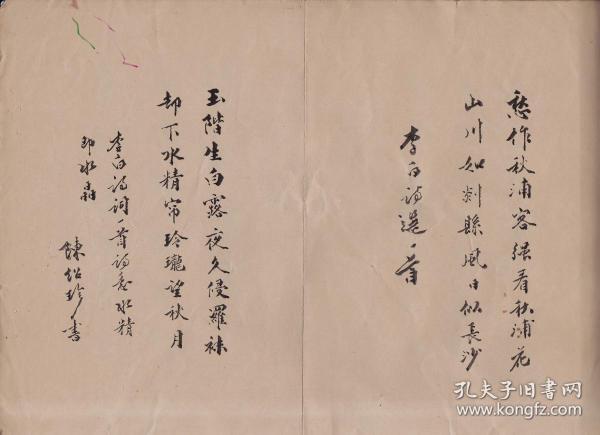 愁作秋浦客强看秋浦花
山川如剡縣風日似長沙
李白詩選一首
玉階生白露夜久侵羅袜
却下水精帘玲瓏望秋月
李白詩詞一首詩意水精
即水晶
陳紹珍書
孔夫子旧书网
www.kongfz.com